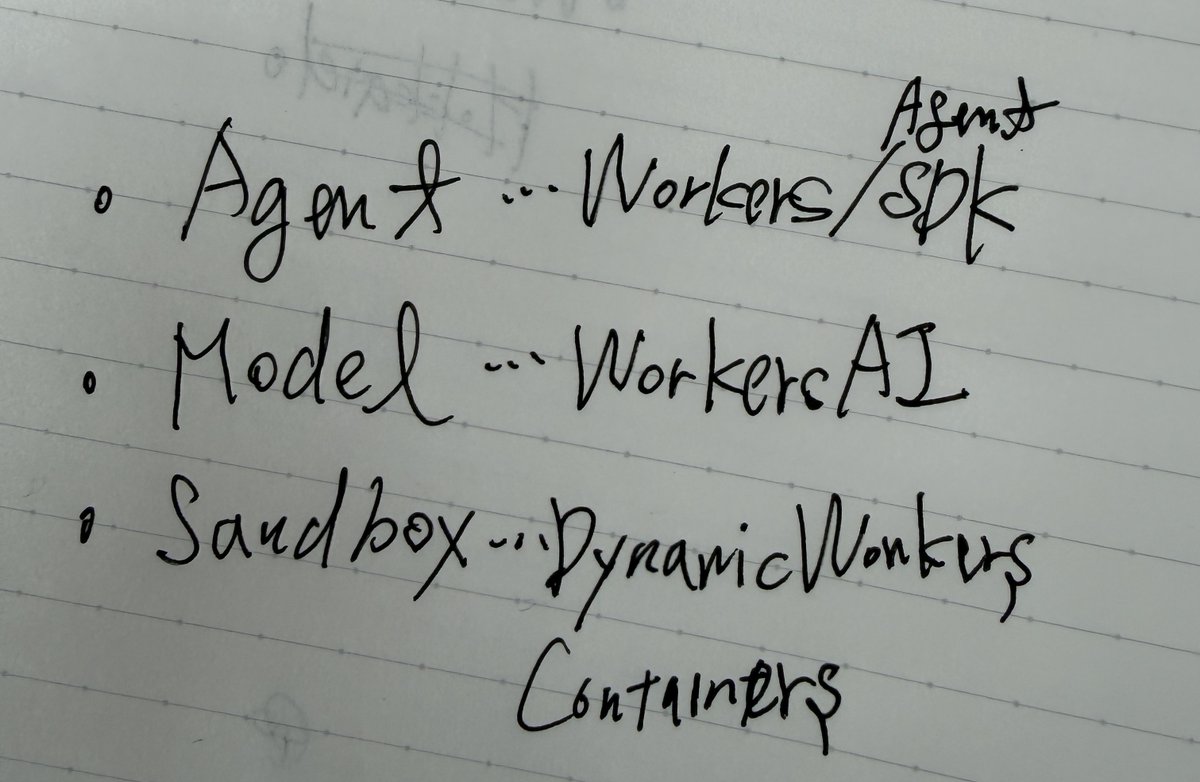 Agent
• Agent ... Workers/SDK
• Model ... Workers AI
• Sandbox ... Dynamic Workers
Containers